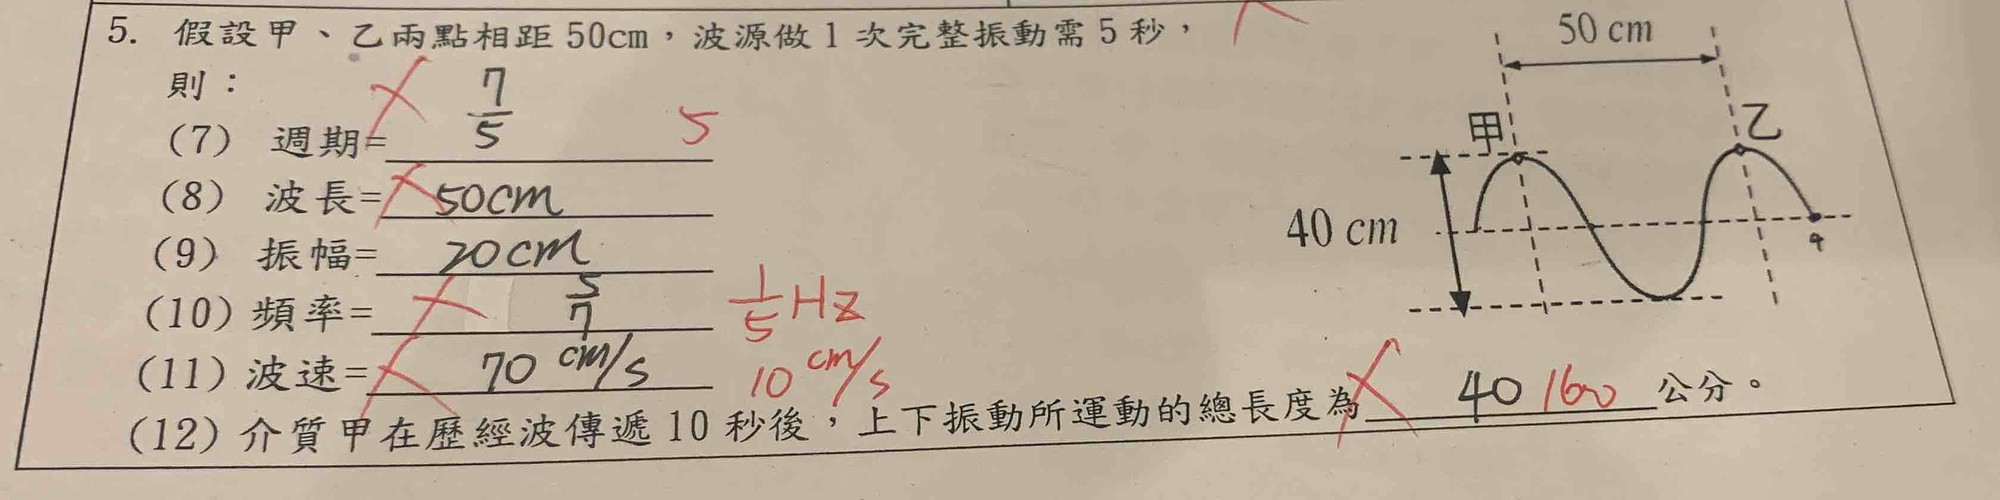 5. 假設甲、乙兩點相距 50cm，波源做 1 次完整振動需 5 秒，
則：
(7) 週期= 7/5 5
(8) 波長= 50cm
(9) 振幅= 20cm
(10) 頻率= 5/7 1/5 Hz
(11) 波速= 70 cm/s 10 cm/s
(12) 介質甲在歷經波傳遞 10 秒後，上下振動所運動的總長度為 40 160 公分。
50 cm
甲
乙
40 cm